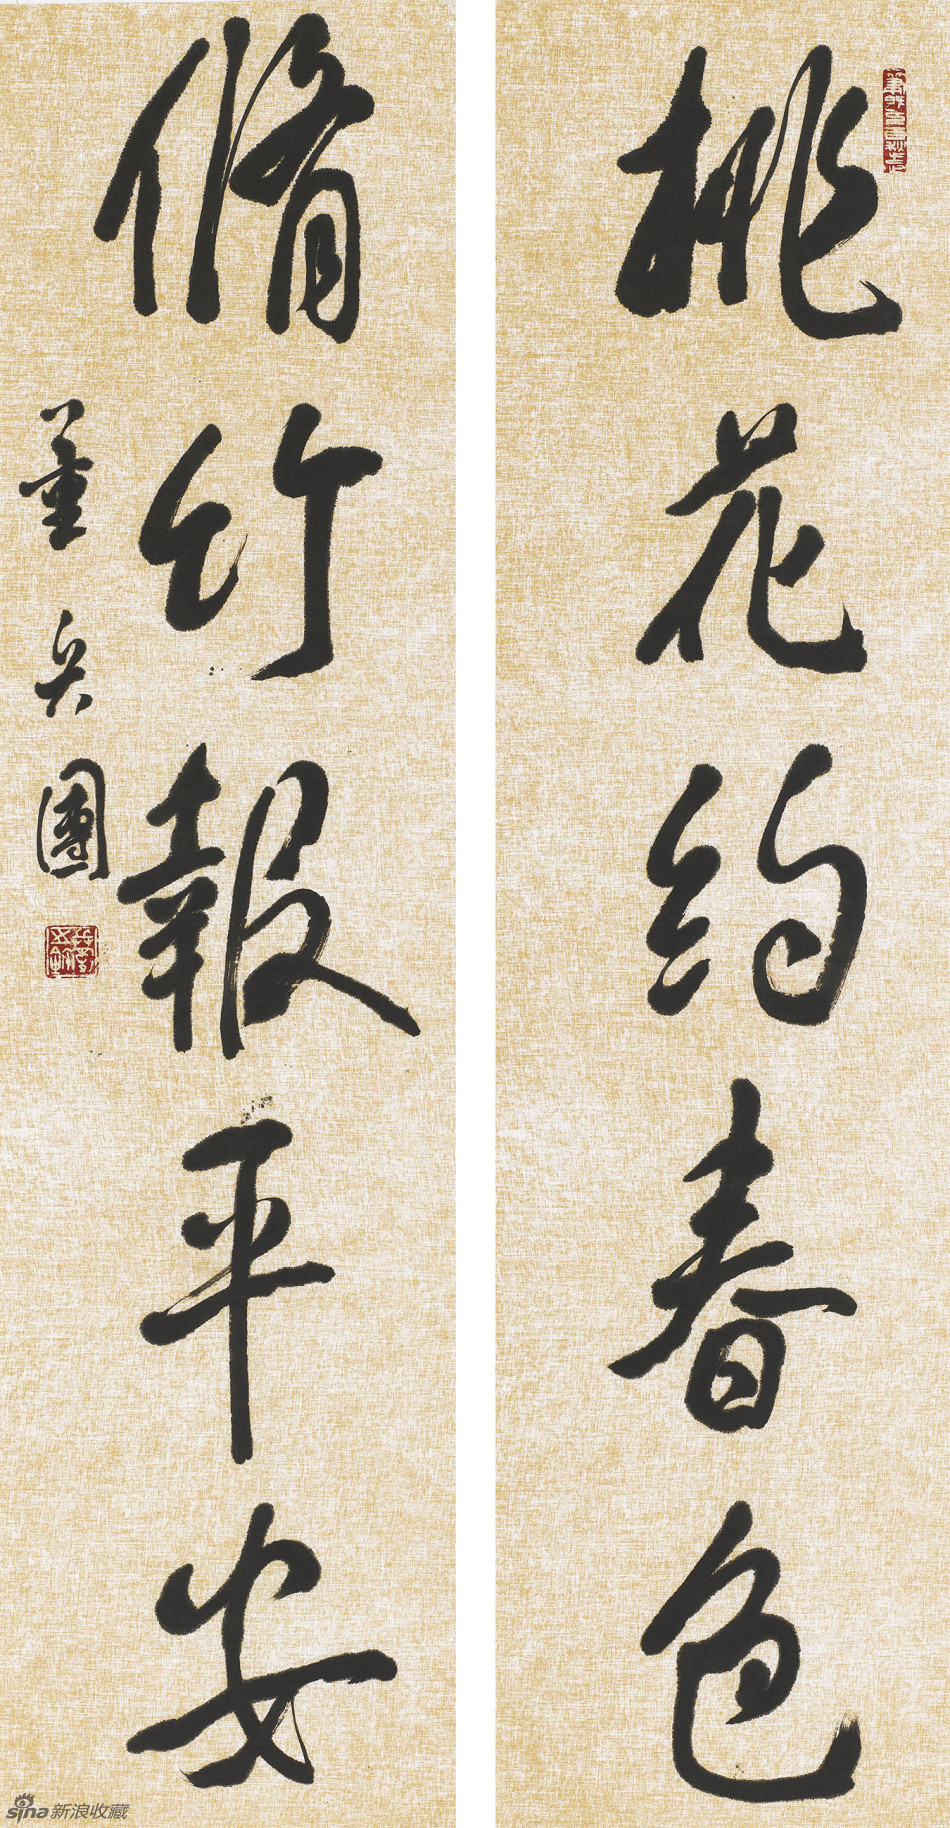 桃花約春色
脩竹報平安
董兵團
sina新浪收藏